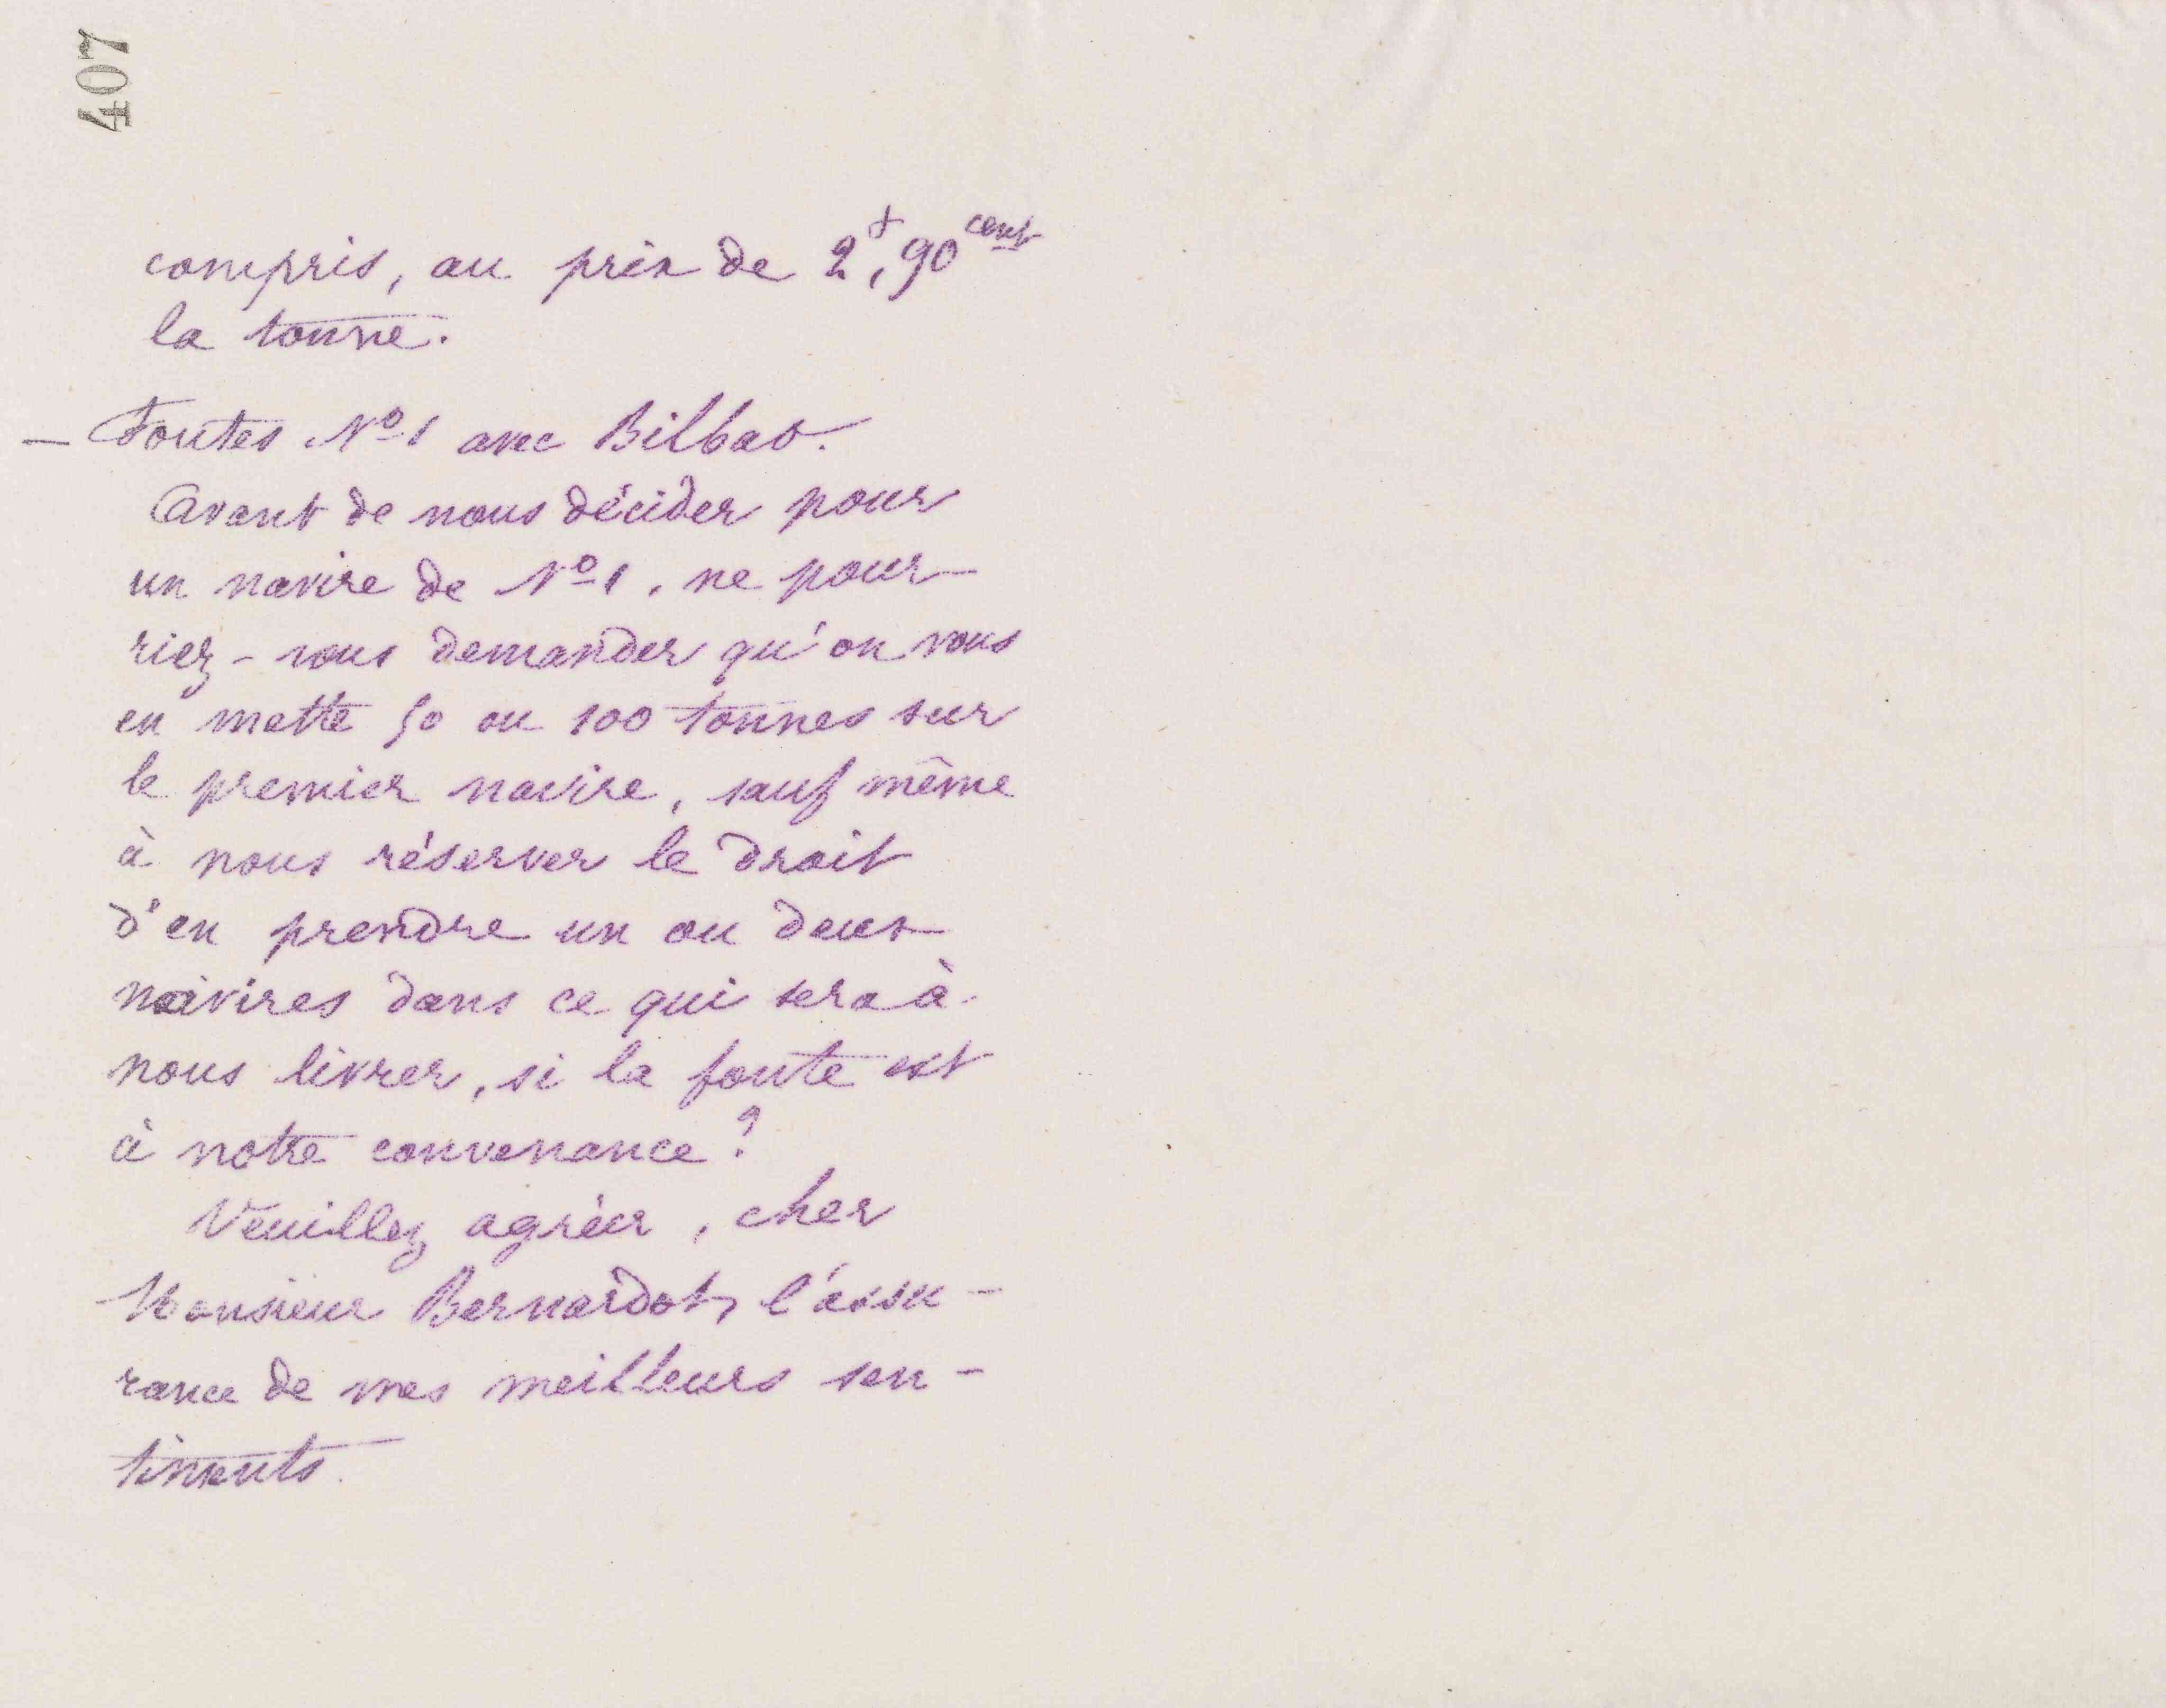 407
compris, au prix de 2f,90cent
la tonne.
— Fontes No 1 avec Bilbao.
Avant de nous décider pour
un navire de No 1, ne pour-
riez-vous demander qu'on vous
en mette 50 ou 100 tonnes sur
le premier navire, sauf même
à nous réserver le droit
d'en prendre un ou deux
navires dans ce qui sera à
nous livrer, si la fonte est
à notre convenance?
Veuillez agréer, cher
Monsieur Bernardot, l'assu-
rance de mes meilleurs sen-
timents.